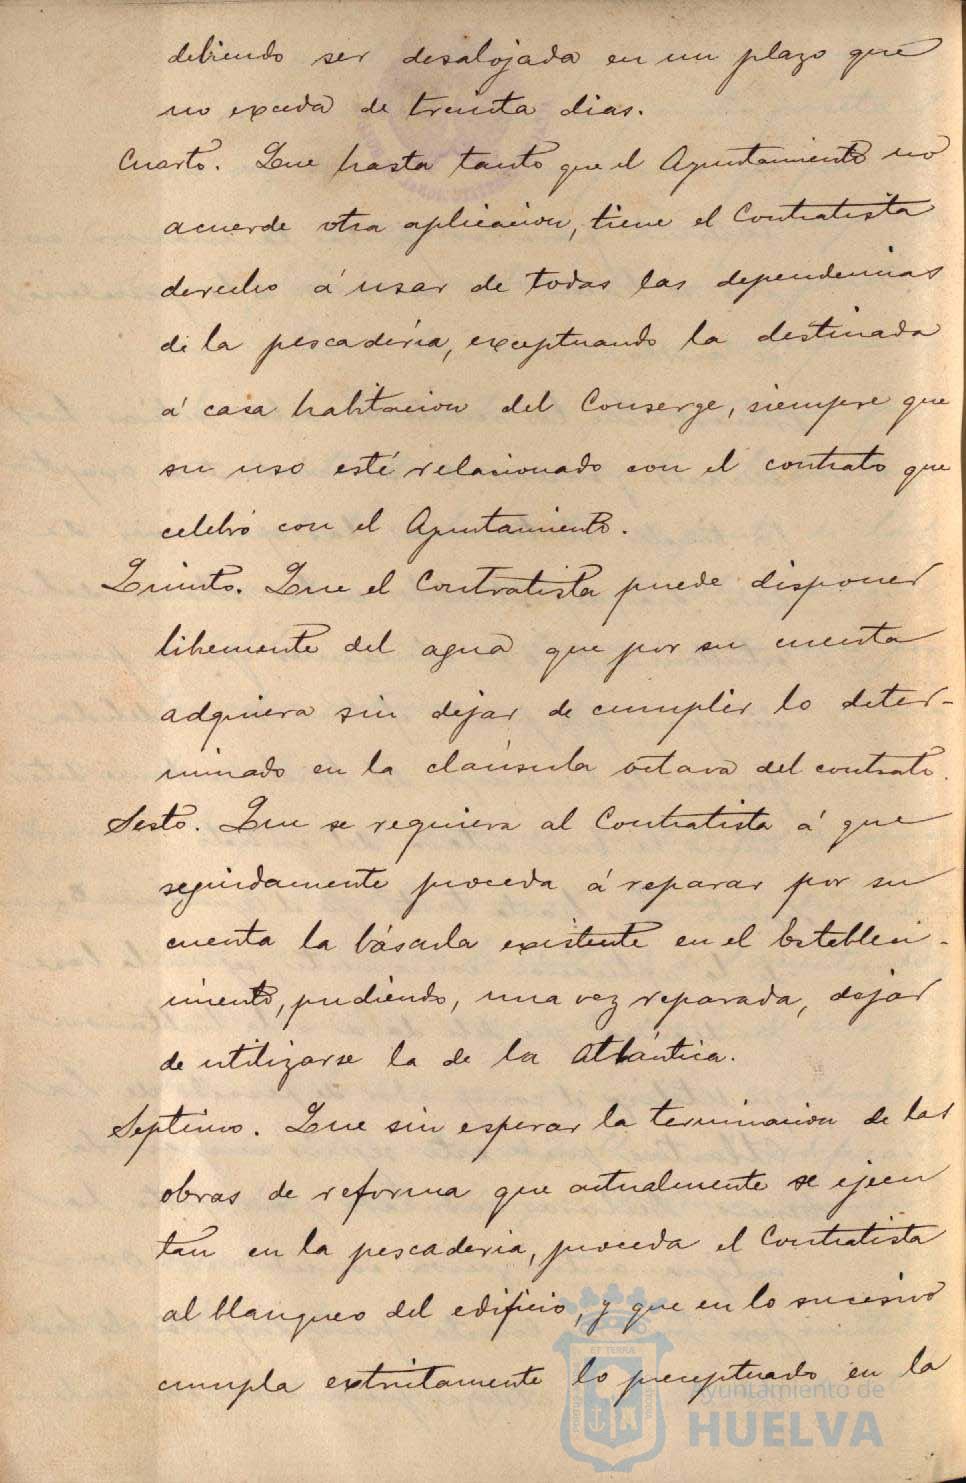 debiendo ser desalojada en un plazo que
no exceda de treinta dias.
Cuarto. Que hasta tanto que el Ayuntamiento no
acuerde otra aplicacion, tiene el Contratista
derecho á usar de todas las dependencias
de la pescadería, exceptuando la destinada
á casa habitacion del Conserge, siempre que
su uso esté relacionado con el contrato que
celebró con el Ayuntamiento.
Quinto. Que el Contratista puede disponer
libremente del agua que por su cuenta
adquiera sin dejar de cumplir lo deter-
minado en la cláusula octava del contrato.
Sesto. Que se requiera al Contratista á que
seguidamente proceda á reparar por su
cuenta la báscula existente en el Estableci-
miento, pudiendo, una vez reparada, dejar
de utilizarse la de la Atlántica.
Septimo. Que sin esperar la terminacion de las
obras de reforma que actualmente se ejecu
tan en la pescaderia, proceda el Contratista
al blanqueo del edificio, y que en lo sucesivo
cumpla extrictamente lo preceptuado en la
ET TERRÆ
Ayuntamiento de
HUELVA